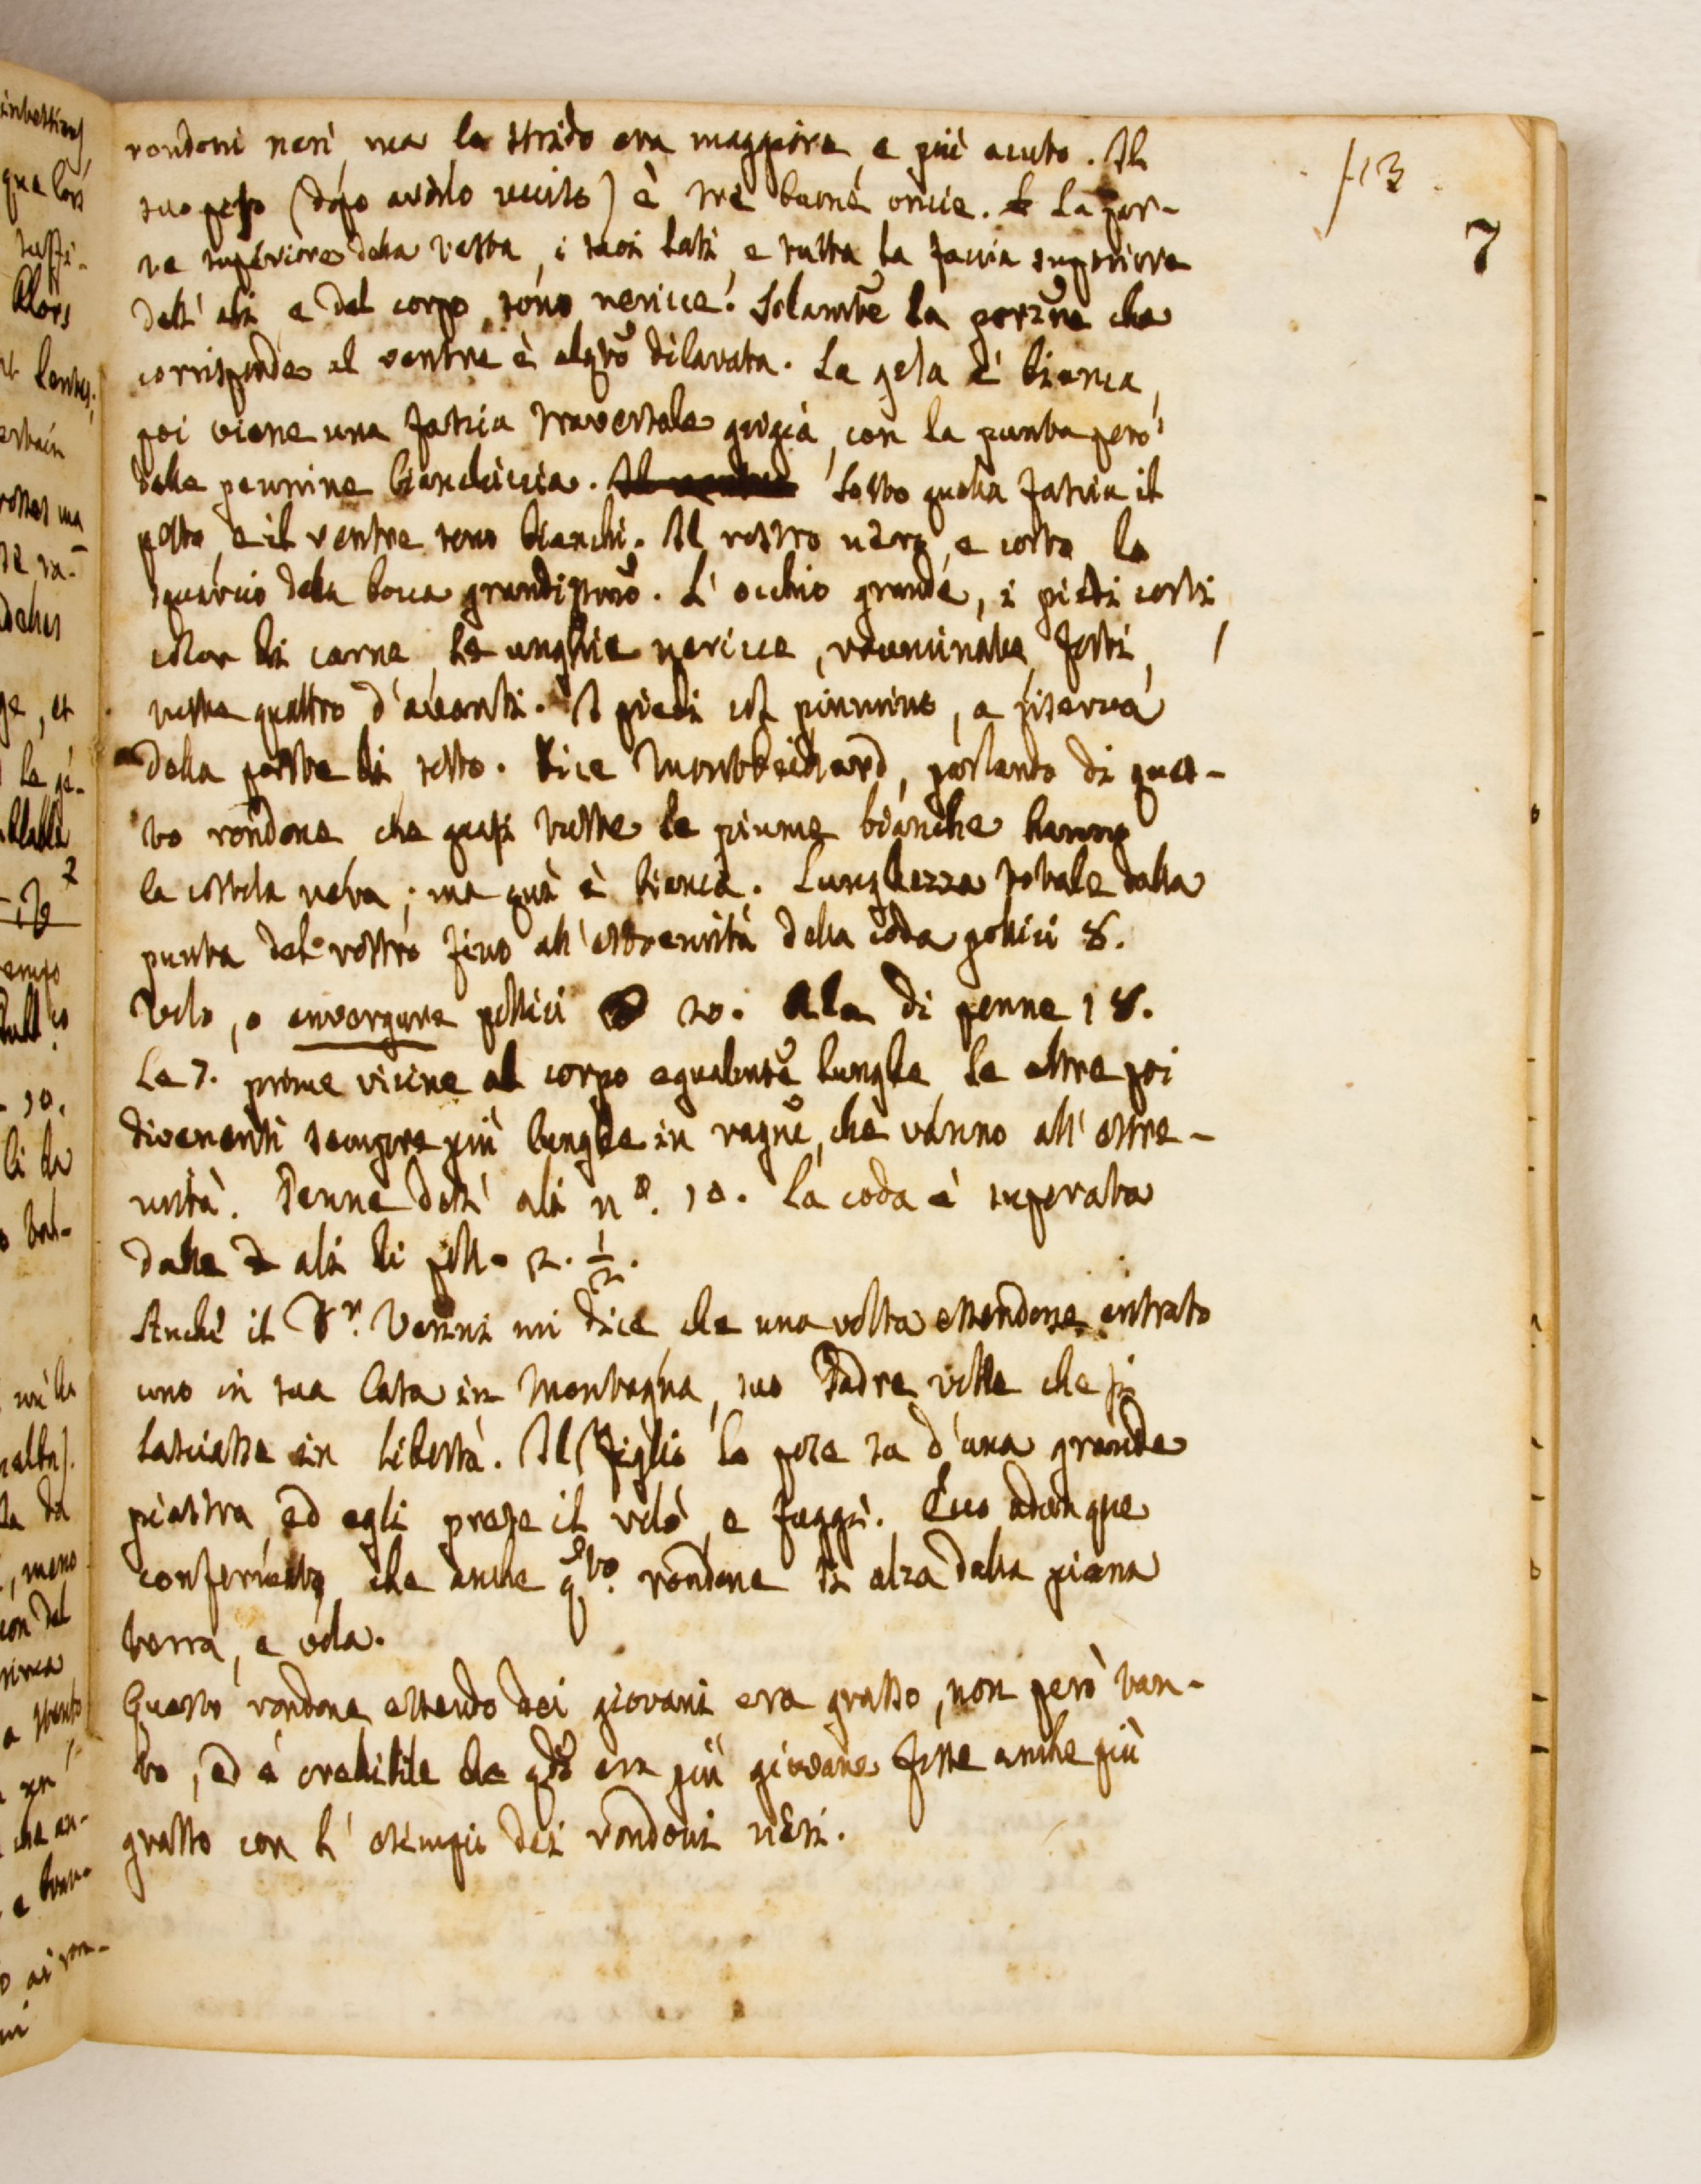 113.
7
rondoni neri, ma lo strido era maggiore, e più acuto. Il
suo peso (dopo averlo ucciso) è tre buone oncie. La par-
te superiore della testa, i suoi lati, e tutta la faccia superiore
dell' ali e del corpo sono nericce. Solamte la porzne che
corrisponde al ventre è alqto dilavata. La gola è bianca,
poi viene una fascia traversale grigia, con la punta però
delle pennine bianchiccia. Il ventre Sotto questa fascia il
petto, e il ventre sono bianchi. Il rostro nero, e corto, lo
squarcio della bocca grandissmo. L' occhio grande, i piedi corti,
color di carne, le unghie nericce, rauncinate, forti,
tutte quattro d'avanti. I piedi col piumino, a riserva
della parte di sotto. Dice Montbeillard, parlando di ques-
to rondone che quasi tutte le piume bianche hanno
la costola nera; ma qui è bianca. Lunghezza totale dalla
punta del rostro fino all'estremità della coda pollici 8.
Volo, o envergure pollici 20. Ala di penne 18.
Le 7. prime vicine al corpo egualmte lunghe, le altre poi
divenenti sempre più lunghe in ragne, che vanno all' estre-
mità. Penne dell' ali no. 10. La coda è superata
dalle ali di poll. 2. 1/2.
Anche il Sr. Vanni mi dice, che una volta essendone entrato
uno in sua Casa in Montagna, suo Padre volle che si
lasciasse in libertà. Il Figlio lo pose su d'una grande
piastra, ed egli prese il volo, e fuggì. Ecco adunque
confermato, che anche qto. rondone si alza dalla piana
terra, e vola.
Questo rondone essendo dei giovani era grasso, non però tan-
to, ed è credibile che qdo era più giovane fosse anche più
grasso con l' esempio dei rondoni neri.